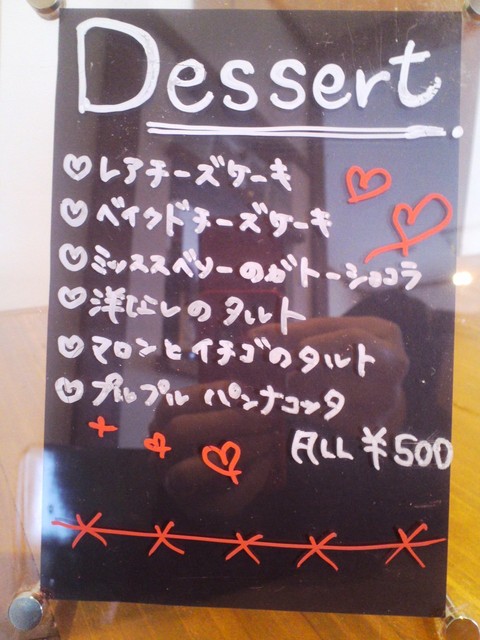 Dessert.
レアチーズケーキ
ベイクドチーズケーキ
ミックスベリーのガトーショコラ
洋なしのタルト
マロンとイチゴのタルト
プルプルパンナコッタ
ALL ¥500